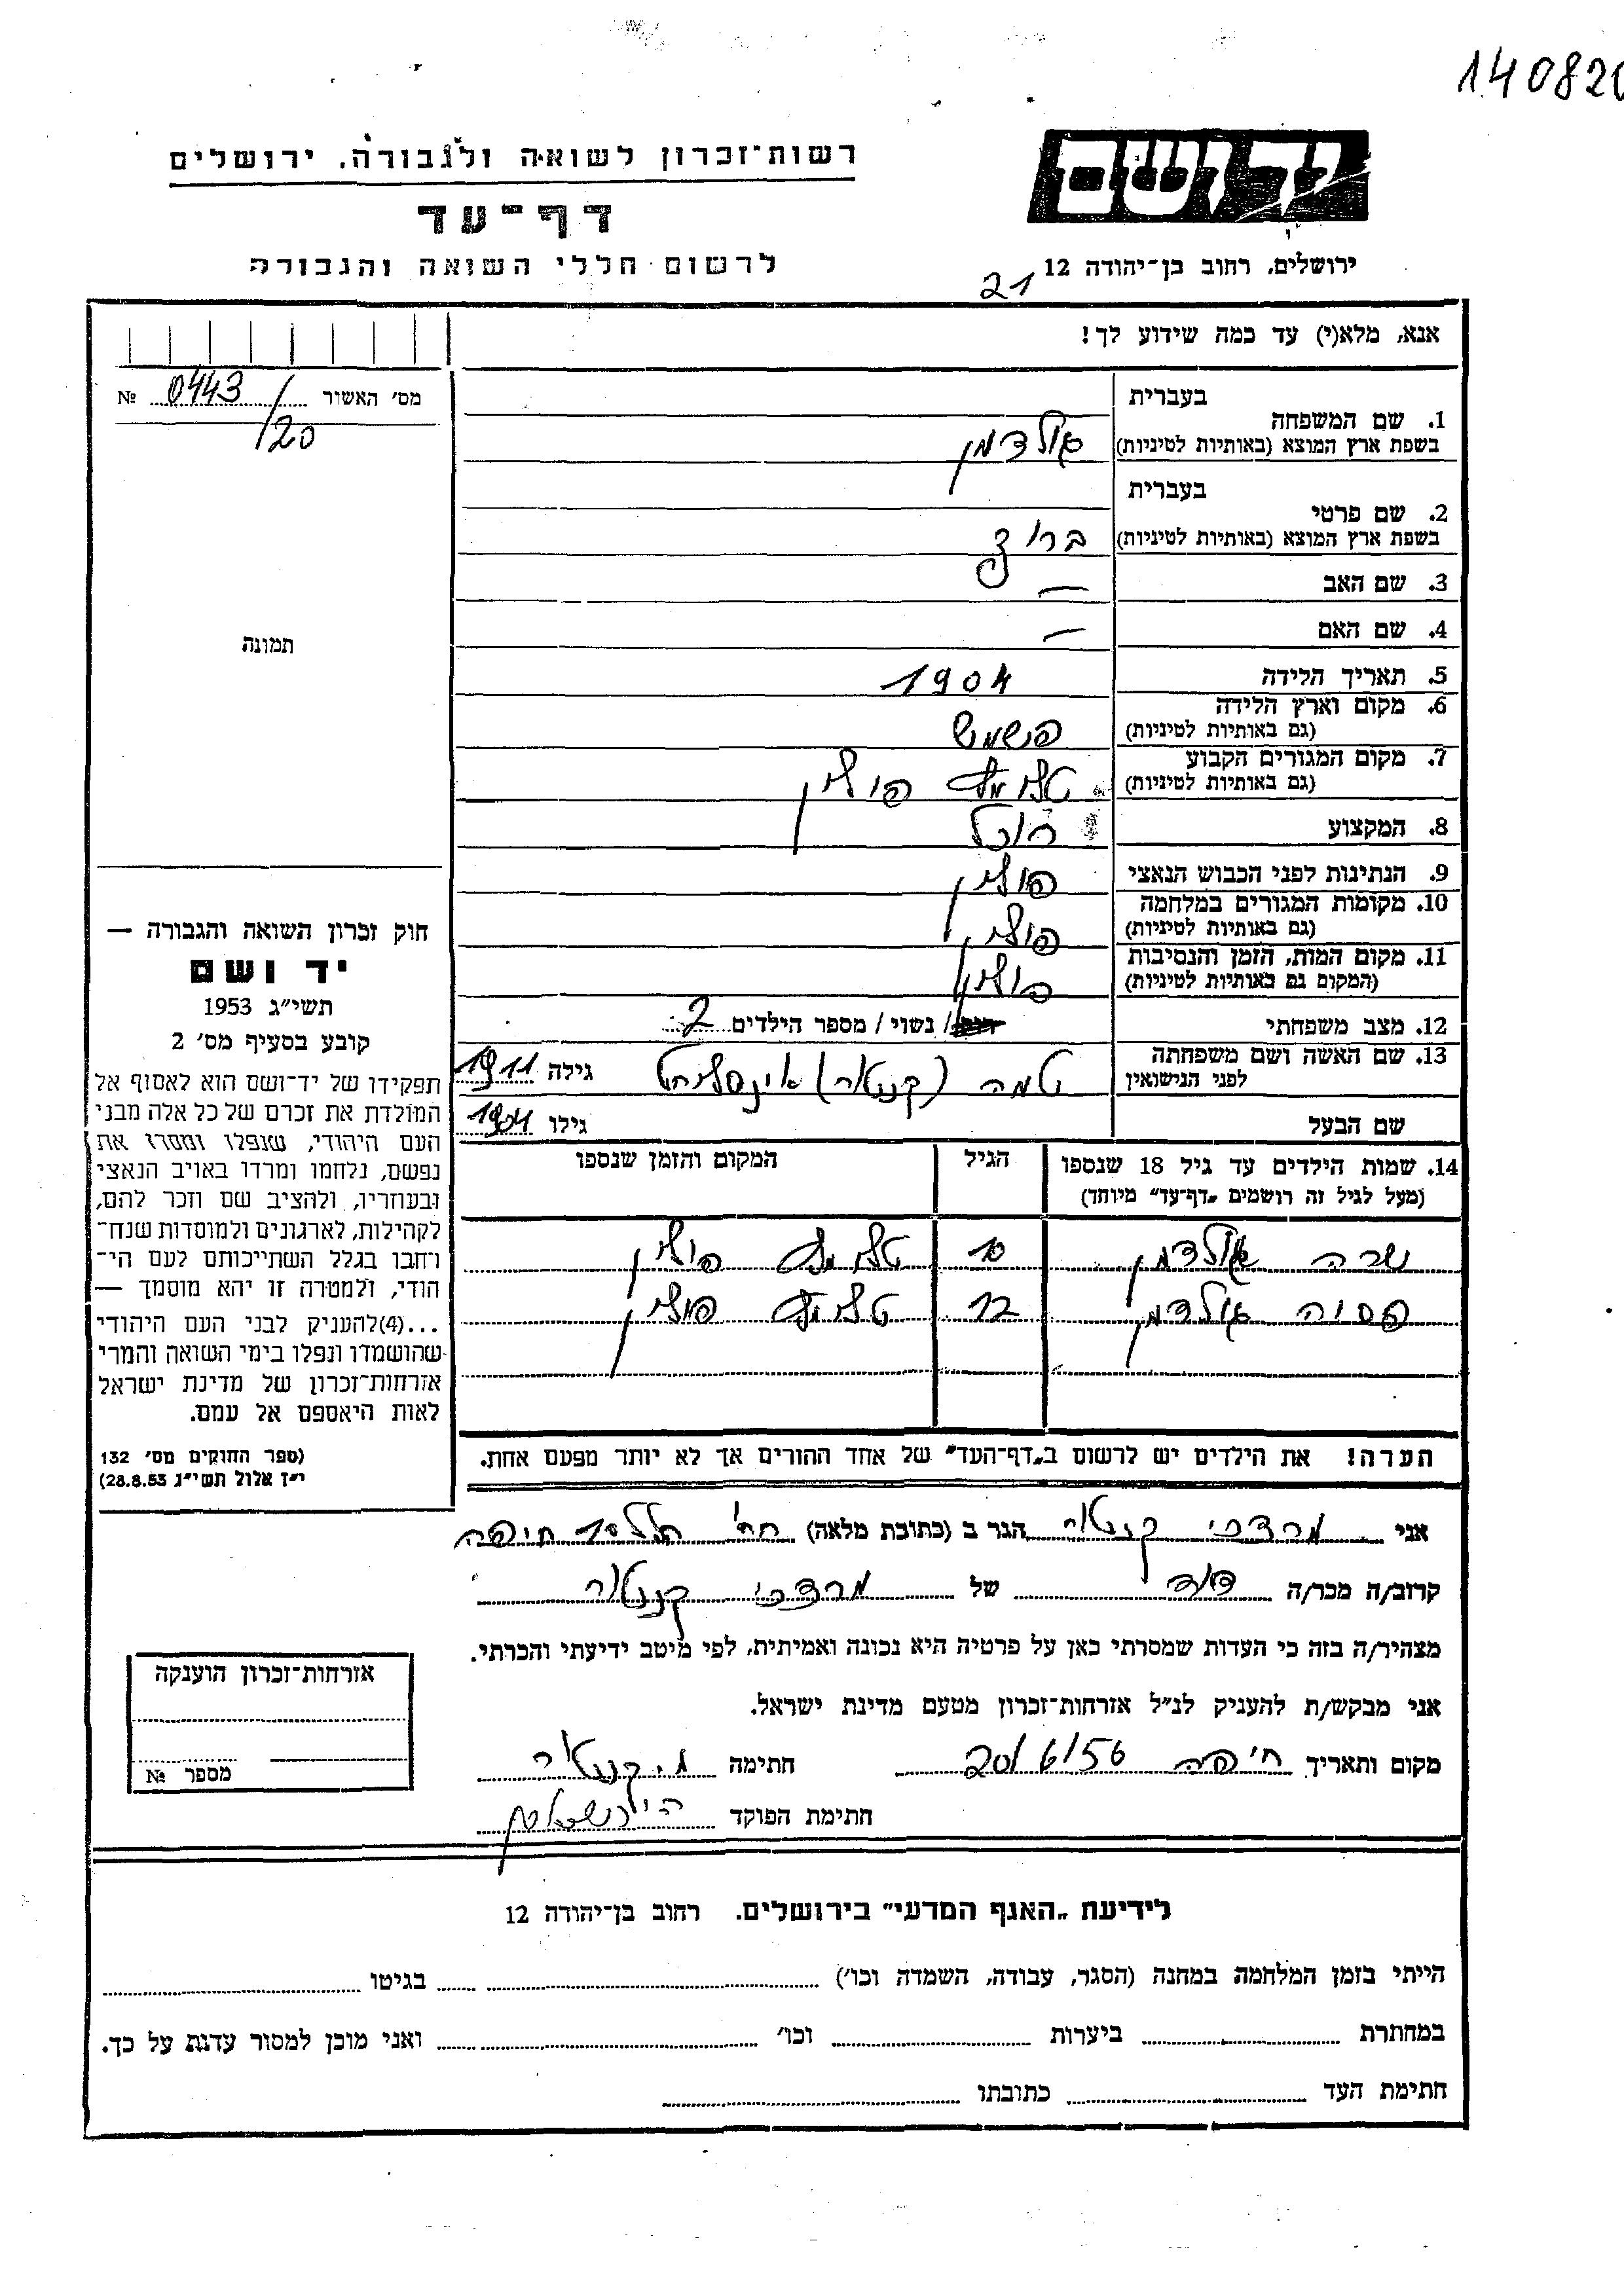 140820
רשות־זכרון לשואה ולגבורה, ירושלים
יד ושם
דף־עד
לרשום חללי השואה והגבורה
ירושלים, רחוב בן־יהודה 12
21
אנא, מלא(י) עד כמה שידוע לך!
מס׳ האשור 0443/20 №
בעברית
1. שם המשפחה
בשפת ארץ המוצא (באותיות לטיניות) אולדמן
בעברית
2. שם פרטי
בשפת ארץ המוצא (באותיות לטיניות) ברוך
3. שם האב —
4. שם האם —
תמונה
5. תאריך הלידה 1904
6. מקום וארץ הלידה
(גם באותיות לטיניות)
7. מקום המגורים הקבוע
(גם באותיות לטיניות) פולין
8. המקצוע רוכל
9. הנתינות לפני הכבוש הנאצי פולין
10. מקומות המגורים במלחמה
(גם באותיות לטיניות) פולין
11. מקום המות, הזמן והנסיבות
(המקום גם באותיות לטיניות) פולין
12. מצב משפחתי / נשוי / מספר הילדים 2
13. שם האשה ושם משפחתה
לפני הנישואין טמה (קנטור) גילה 1911
שם הבעל גילו 1904
14. שמות הילדים עד גיל 18 שנספו
(מעל לגיל זה רושמים „דף־עד״ מיוחד)
הגיל
המקום והזמן שנספו
שרה אולדמן 10 פולין
פסיה אולדמן 12 פולין
הערה! את הילדים יש לרשום ב„דף־העד״ של אחד ההורים אך לא יותר מפעם אחת.
חוק זכרון השואה והגבורה —
יד ושם
תשי״ג 1953
קובע בסעיף מס׳ 2
תפקידו של יד־ושם הוא לאסוף אל
המולדת את זכרם של כל אלה מבני
העם היהודי, שנפלו ומסרו את
נפשם, נלחמו ומרדו באויב הנאצי
ובעוזריו, ולהציב שם וזכר להם,
לקהילות, לארגונים ולמוסדות שנח־
רחבו בגלל השתייכותם לעם הי־
הודי, ולמטרה זו יהא מוסמך —
...(4)להעניק לבני העם היהודי
שהושמדו ונפלו בימי השואה והמרי
אזרחות־זכרון של מדינת ישראל
לאות היאספם אל עמם.
(ספר החוקים מס׳ 132
י״ז אלול תשי״ג 28.8.53)
אני מרדכי קנטור הגר ב (כתובת מלאה) רח׳ הלל 10 חיפה
קרוב/ה מכר/ה דוד של מרדכי קנטור
מצהיר/ה בזה כי העדות שמסרתי כאן על פרטיה היא נכונה ואמיתית, לפי מיטב ידיעתי והכרתי.
אני מבקש/ת להעניק לנ״ל אזרחות־זכרון מטעם מדינת ישראל.
מקום ותאריך חיפה 20/6/56 חתימה מ. קנטור
חתימת הפוקד
אזרחות־זכרון הוענקה
מספר №
לידיעת „האגף המדעי״ בירושלים. רחוב בן־יהודה 12
הייתי בזמן המלחמה במחנה (הסגר, עבודה, השמדה וכו׳) בגיטו
במחתרת ביערות וכו׳ ואני מוכן למסור עדות על כך.
חתימת העד כתובתו